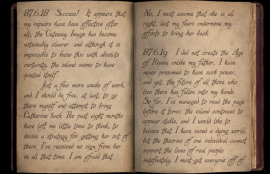 87.6.18 Success! It appears that
my repairs have been effective after
all; the Gateway Image has become
noticeably clearer and although it is
impossible to know this with absolute
certainty, the island seems to have
created itself.
Just a few more weeks of work,
and I should be free, at last, to go
there myself and attempt to bring
Catherine back. The past eight months
have left me little time to think, to
devise a strategy for getting her out of
there. I've received no sign from her
in all that time. I am afraid that
No, I must assume that she is all
right, lest my fears undermine my
efforts to bring her back.
87.6.19 I did not create the Age
of Riven, unlike my father, I have
never presumed to have such power,
and yet, the future of all those who
live there has fallen into my hands.
So far, I've managed to read the page
before it turns; the island continues to
appear stable, and I would like to
believe that I have saved a dying world,
but the theories of one individual cannot
support the lives of real people
indefinitely. I must get everyone off of